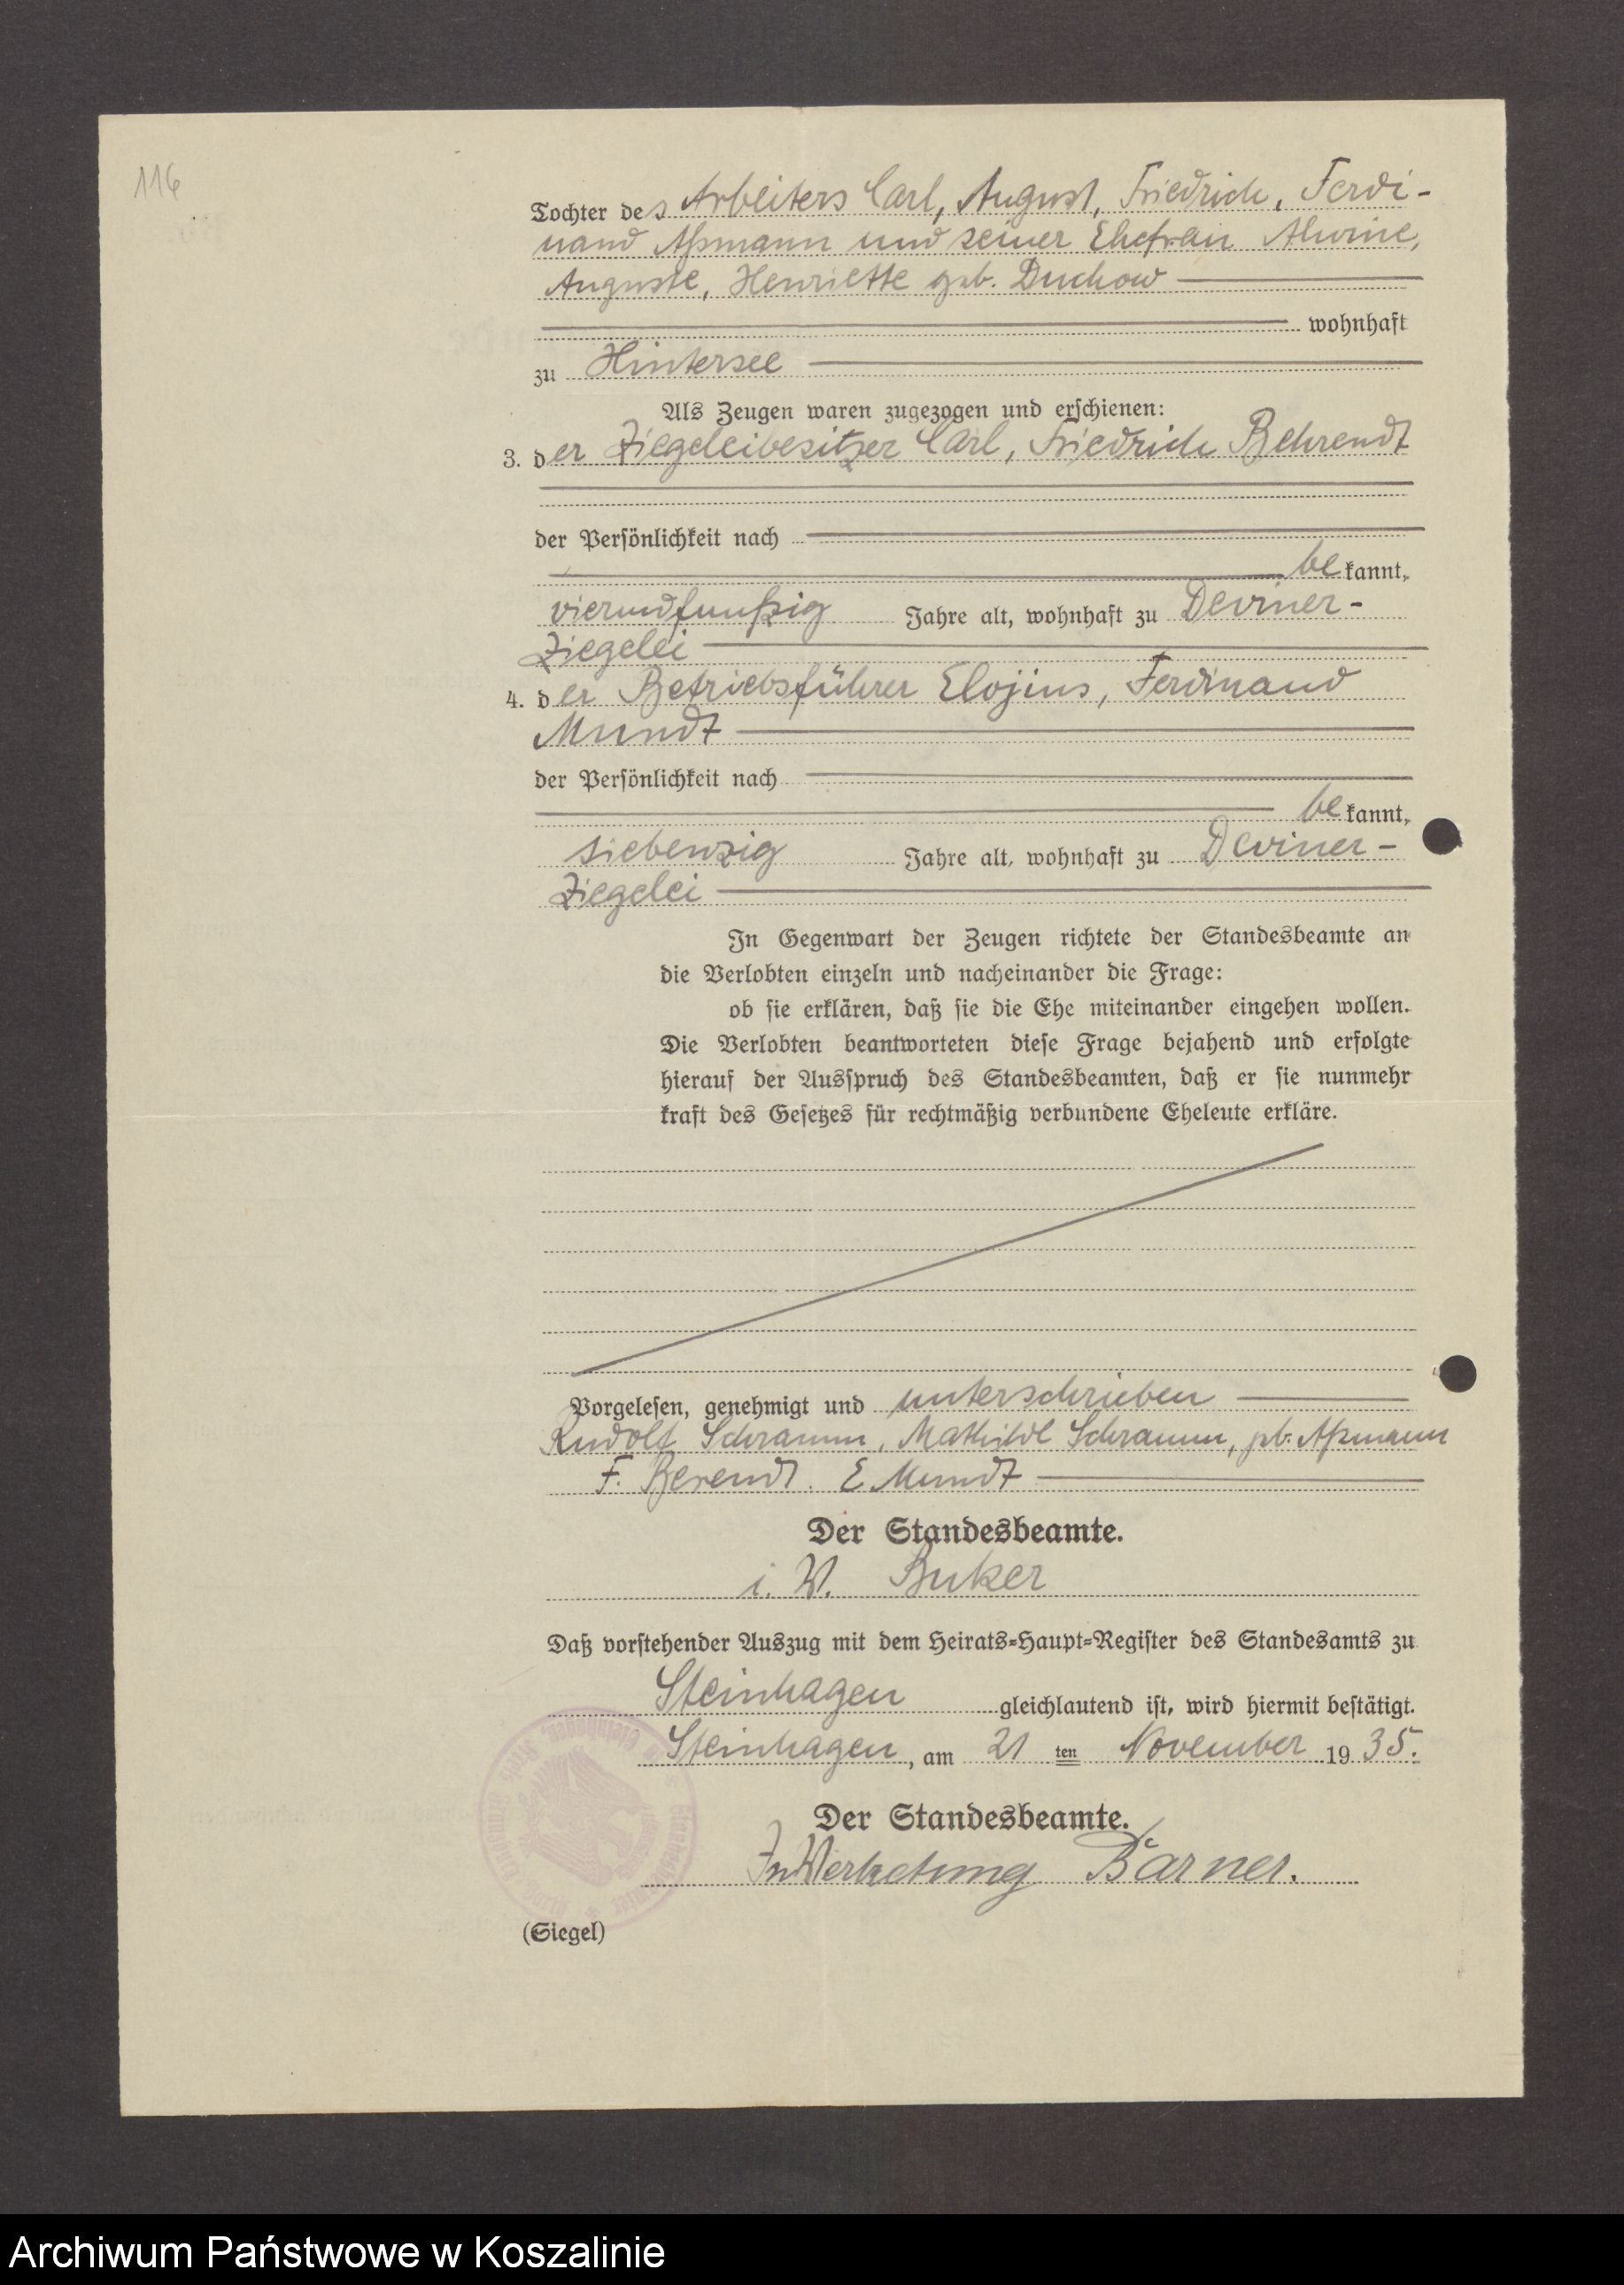 116
Tochter des Arbeiters Carl, August, Friedrich, Ferdi-
nand Aßmann und seiner Ehefrau Alwine,
Auguste, Henriette geb. Duchow
wohnhaft
zu Hintersee
Als Zeugen waren zugezogen und erschienen:
3. der Ziegeleibesitzer Carl, Friedrich Behrendt
der Persönlichkeit nach
be kannt,
vierundfunfzig Jahre alt, wohnhaft zu Deviner-
Ziegelei
4. der Betriebsführer Elojius, Ferdinand
Mundt
der Persönlichkeit nach
be kannt,
siebenzig Jahre alt, wohnhaft zu Deviner-
Ziegelei
In Gegenwart der Zeugen richtete der Standesbeamte an
die Verlobten einzeln und nacheinander die Frage:
ob sie erklären, daß sie die Ehe miteinander eingehen wollen.
Die Verlobten beantworteten diese Frage bejahend und erfolgte
hierauf der Ausspruch des Standesbeamten, daß er sie nunmehr
kraft des Gesetzes für rechtmäßig verbundene Eheleute erkläre.
Vorgelesen, genehmigt und unterschrieben
Rudolf Schramm, Mathilde Schramm, geb. Aßmann
F. Berendt. E. Mundt
Der Standesbeamte.
i. V. Buker
Daß vorstehender Auszug mit dem Heirats-Haupt-Register des Standesamts zu
Steinhagen gleichlautend ist, wird hiermit bestätigt.
Steinhagen, am 21 ten November 1935.
Der Standesbeamte.
In Vertretung Barner.
(Siegel)
Archiwum Państwowe w Koszalinie